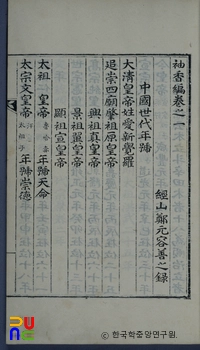 袖香編卷之一
經山鄭元容善之錄
中國世代年歸
大清皇帝姓愛新覺羅
追崇四廟肇祖原皇帝
興祖直皇帝
景祖翼皇帝
顯祖宣皇帝
太祖 皇帝 年歸天命
太宗文皇帝 年歸崇德
ⓒ 한국학중앙연구원.